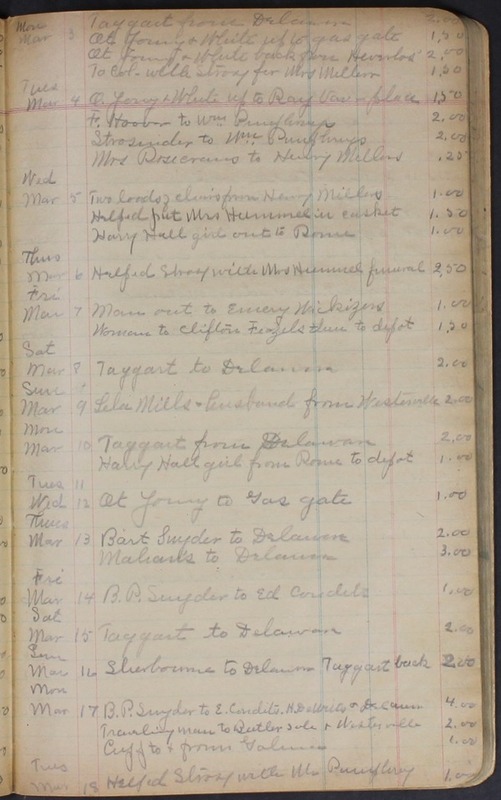 Mon
Mar 3 Taggart from Delaware 2.00
At Young & White up to gas gate 1,50
At Young & White back from 2,00
To Cor. with Stroay for Mrs Miller 1,50
Tues
Mar 4 O. Young & White up to Ray place 1,50
F. Hoover to Wm Pumphrey 2.00
Strosnider to Wm Pumphreys 2.00
Mrs Rosecrans to Henry Millers .25
Wed
Mar 5 Two loads chairs from Henry Millers 1.00
Helped put Mrs Hummel in casket 1.50
Harry Hall girl out to Rome 1.00
Thus
Mar 6 Helped Stroay with Mrs Hummel funeral 2,50
Fri
Mar 7 Man out to Emery Wickizers 1.00
Woman to Clifton to depot 1,50
Sat
Mar 8 Taggart to Delaware 2.00
Sun
Mar 9 Lela Mills & husband from Westerville 2.00
Mon
Mar 10 Taggart from Delawar 2.00
Harry Hall girl from Rome to depot 1.00
Tues 11
Wed 12 At Young to Gas gate 1.00
Thurs
Mar 13 Bart Snyder to Delaware 2.00
to Delaware 3.00
Fri
Mar 14 B.P. Snyder to Ed Condits 1.00
Sat
Mar 15 Taggart to Delawar 2.00
Sun
Mar 16 Sherbourne to Delawar Taggart back 2.00
Mon
Mar 17 B.P. Snyder to E. Condits. & Delawar 4.00
Traveling man to Butler sale & Westerville 2.00
Cuff to & from Galena 1.00
Tues
Mar 18 Helped Stroay with Mr Pumphrey 1.00